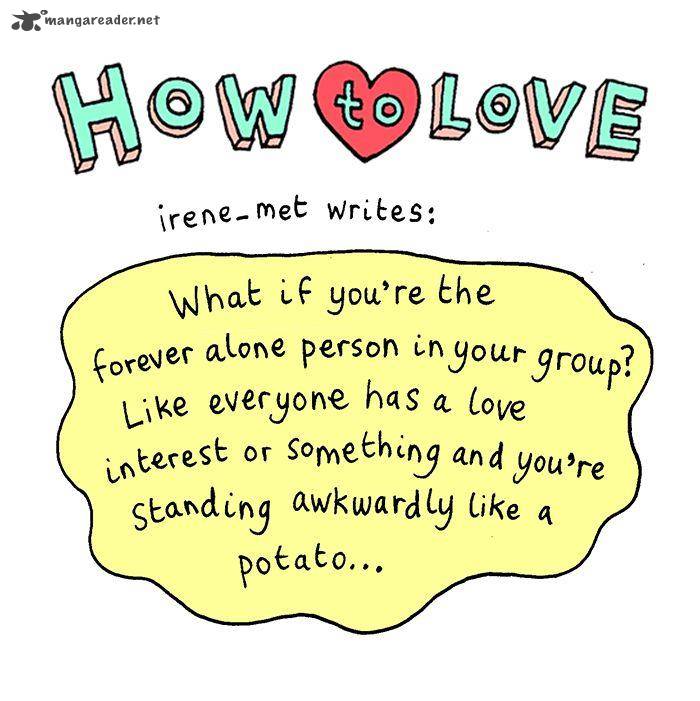 mangareader.net
HOW to LOVE
irene-met writes:
What if you're the
forever alone person in your group?
Like everyone has a love
interest or something and you're
standing awkwardly like a
potato...